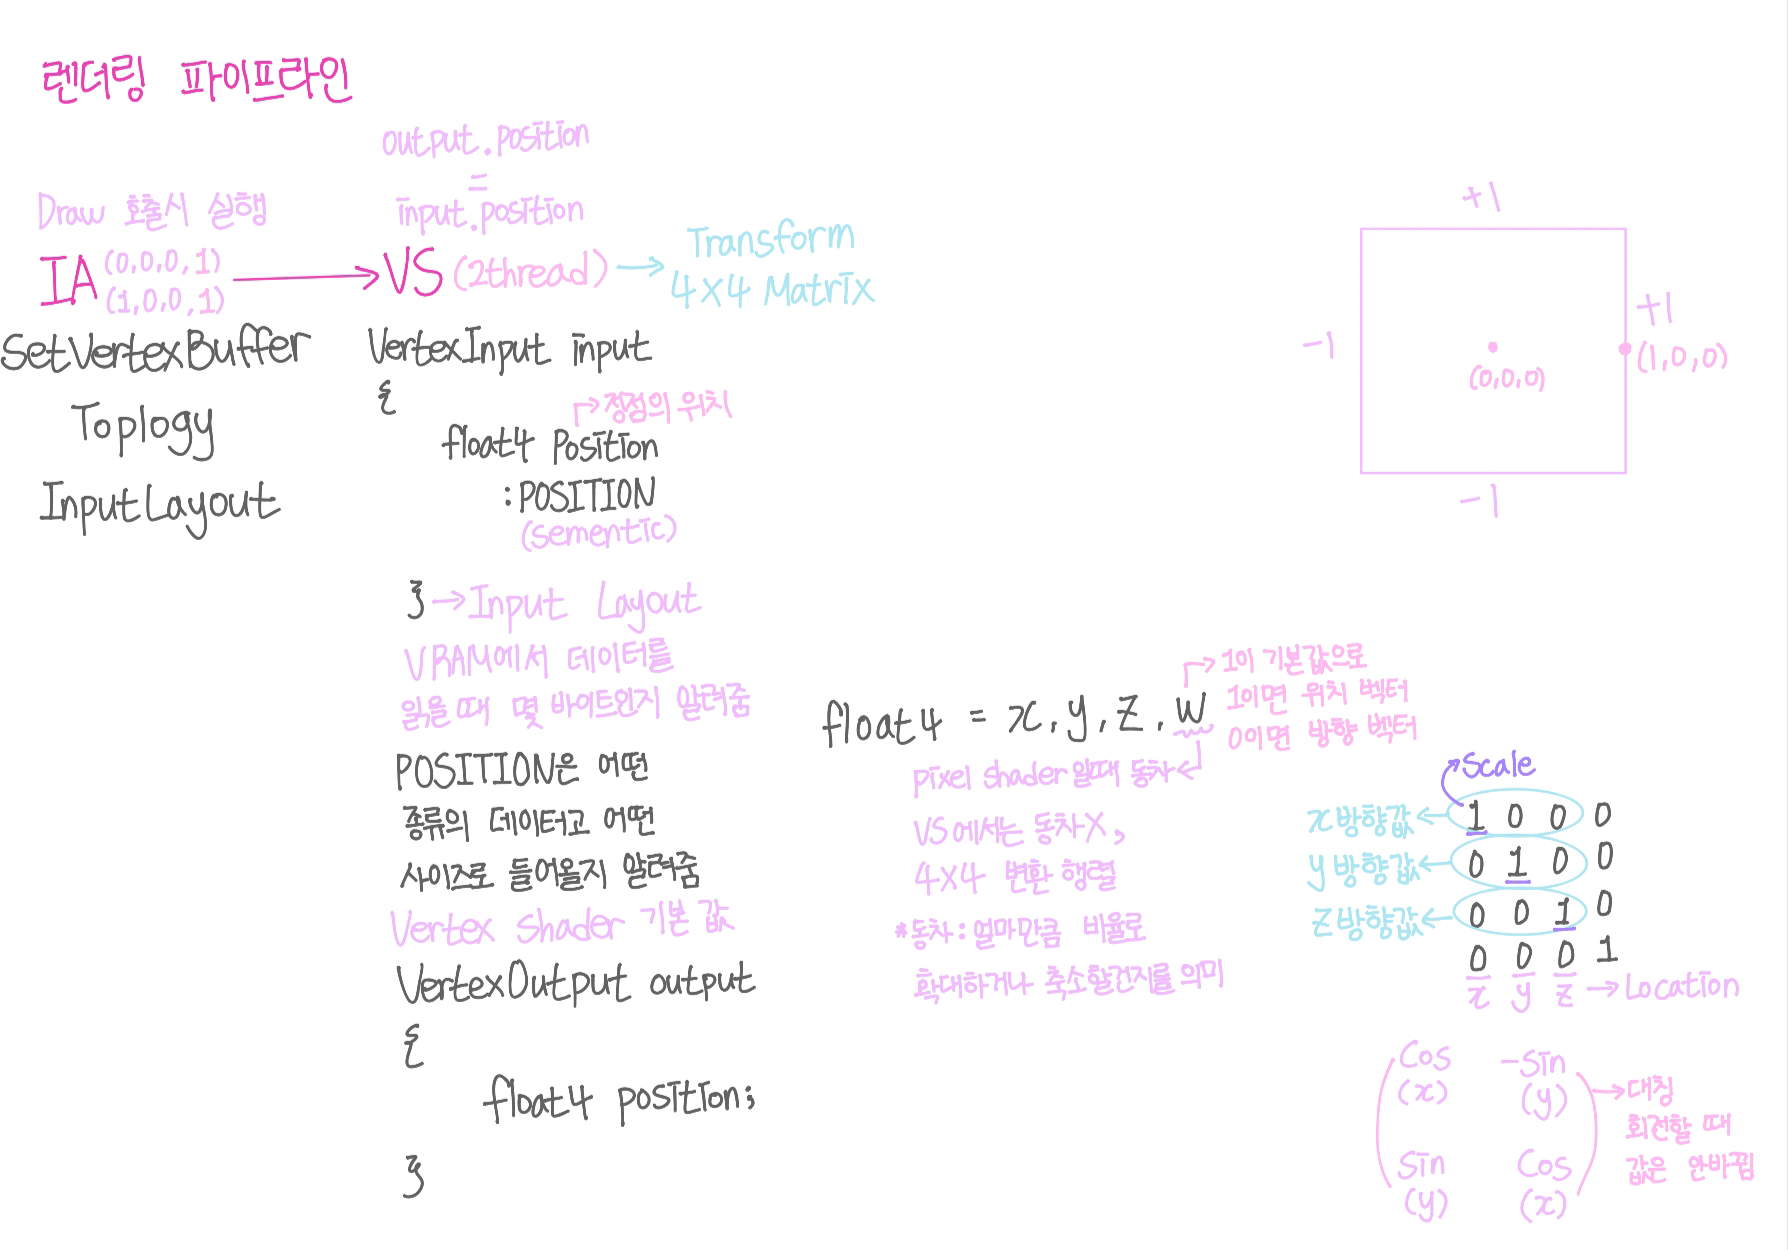 렌더링 파이프라인
Draw 호출시 실행
IA (0,0,0,1)
(1,0,0,1)
SetVertexBuffer
Toplogy
InputLayout
output.position
=
input.position
VS (2thread)
Transform
4X4 Matrix
VertexInput input
{
정점의 위치
float4 Position
:POSITION
(sementic)
} Input Layout
VRAM에서 데이터를
읽을 때 몇 바이트인지 알려줌
POSITION은 어떤
종류의 데이터고 어떤
사이즈로 들어올지 알려줌
Vertex Shader 기본 값
VertexOutput output
{
float4 position;
}
float4 = x,y,z,w
1이 기본값으로
1이면 위치 벡터
0이면 방향 벡터
pixel shader 일때 동차
VS에서는 동차X,
4X4 변환 행렬
*동차: 얼마만큼 비율로
확대하거나 축소할건지를 의미
+1
-1
+1
(0,0,0)
(1,0,0)
-1
Scale
x방향값 1 0 0 0
y방향값 0 1 0 0
z방향값 0 0 1 0
0 0 0 1
x y z Location
Cos -Sin
(x) (y)
Sin Cos
(y) (x)
대칭
회전할 때
값은 안바뀜